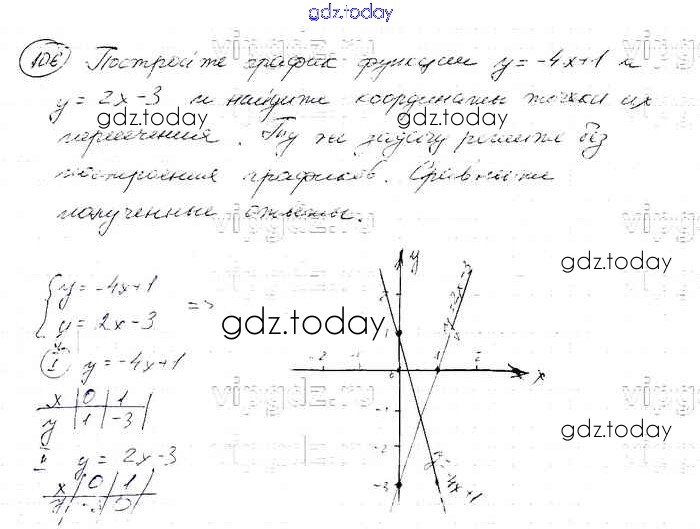 gdz.today
106 Постройте график функции y = -4x+1 и
y = 2x-3 и найдите координаты точки их
пересечения. Ту же задачу решите без
построения графиков. Сравните
полученные ответы.
gdz.today
gdz.today
gdz.today
y = -4x+1 =>
y = 2x-3
gdz.today
I y = -4x+1
x 0 1
y 1 -3
II y = 2x-3
x 0 1
y
y
y = 2x-3
1
-2 0 x
-1
-2
-3
y = -4x+1
gdz.today
vipgdz.ru
vipgdz.ru
vipgdz.ru
vipgdz.ru